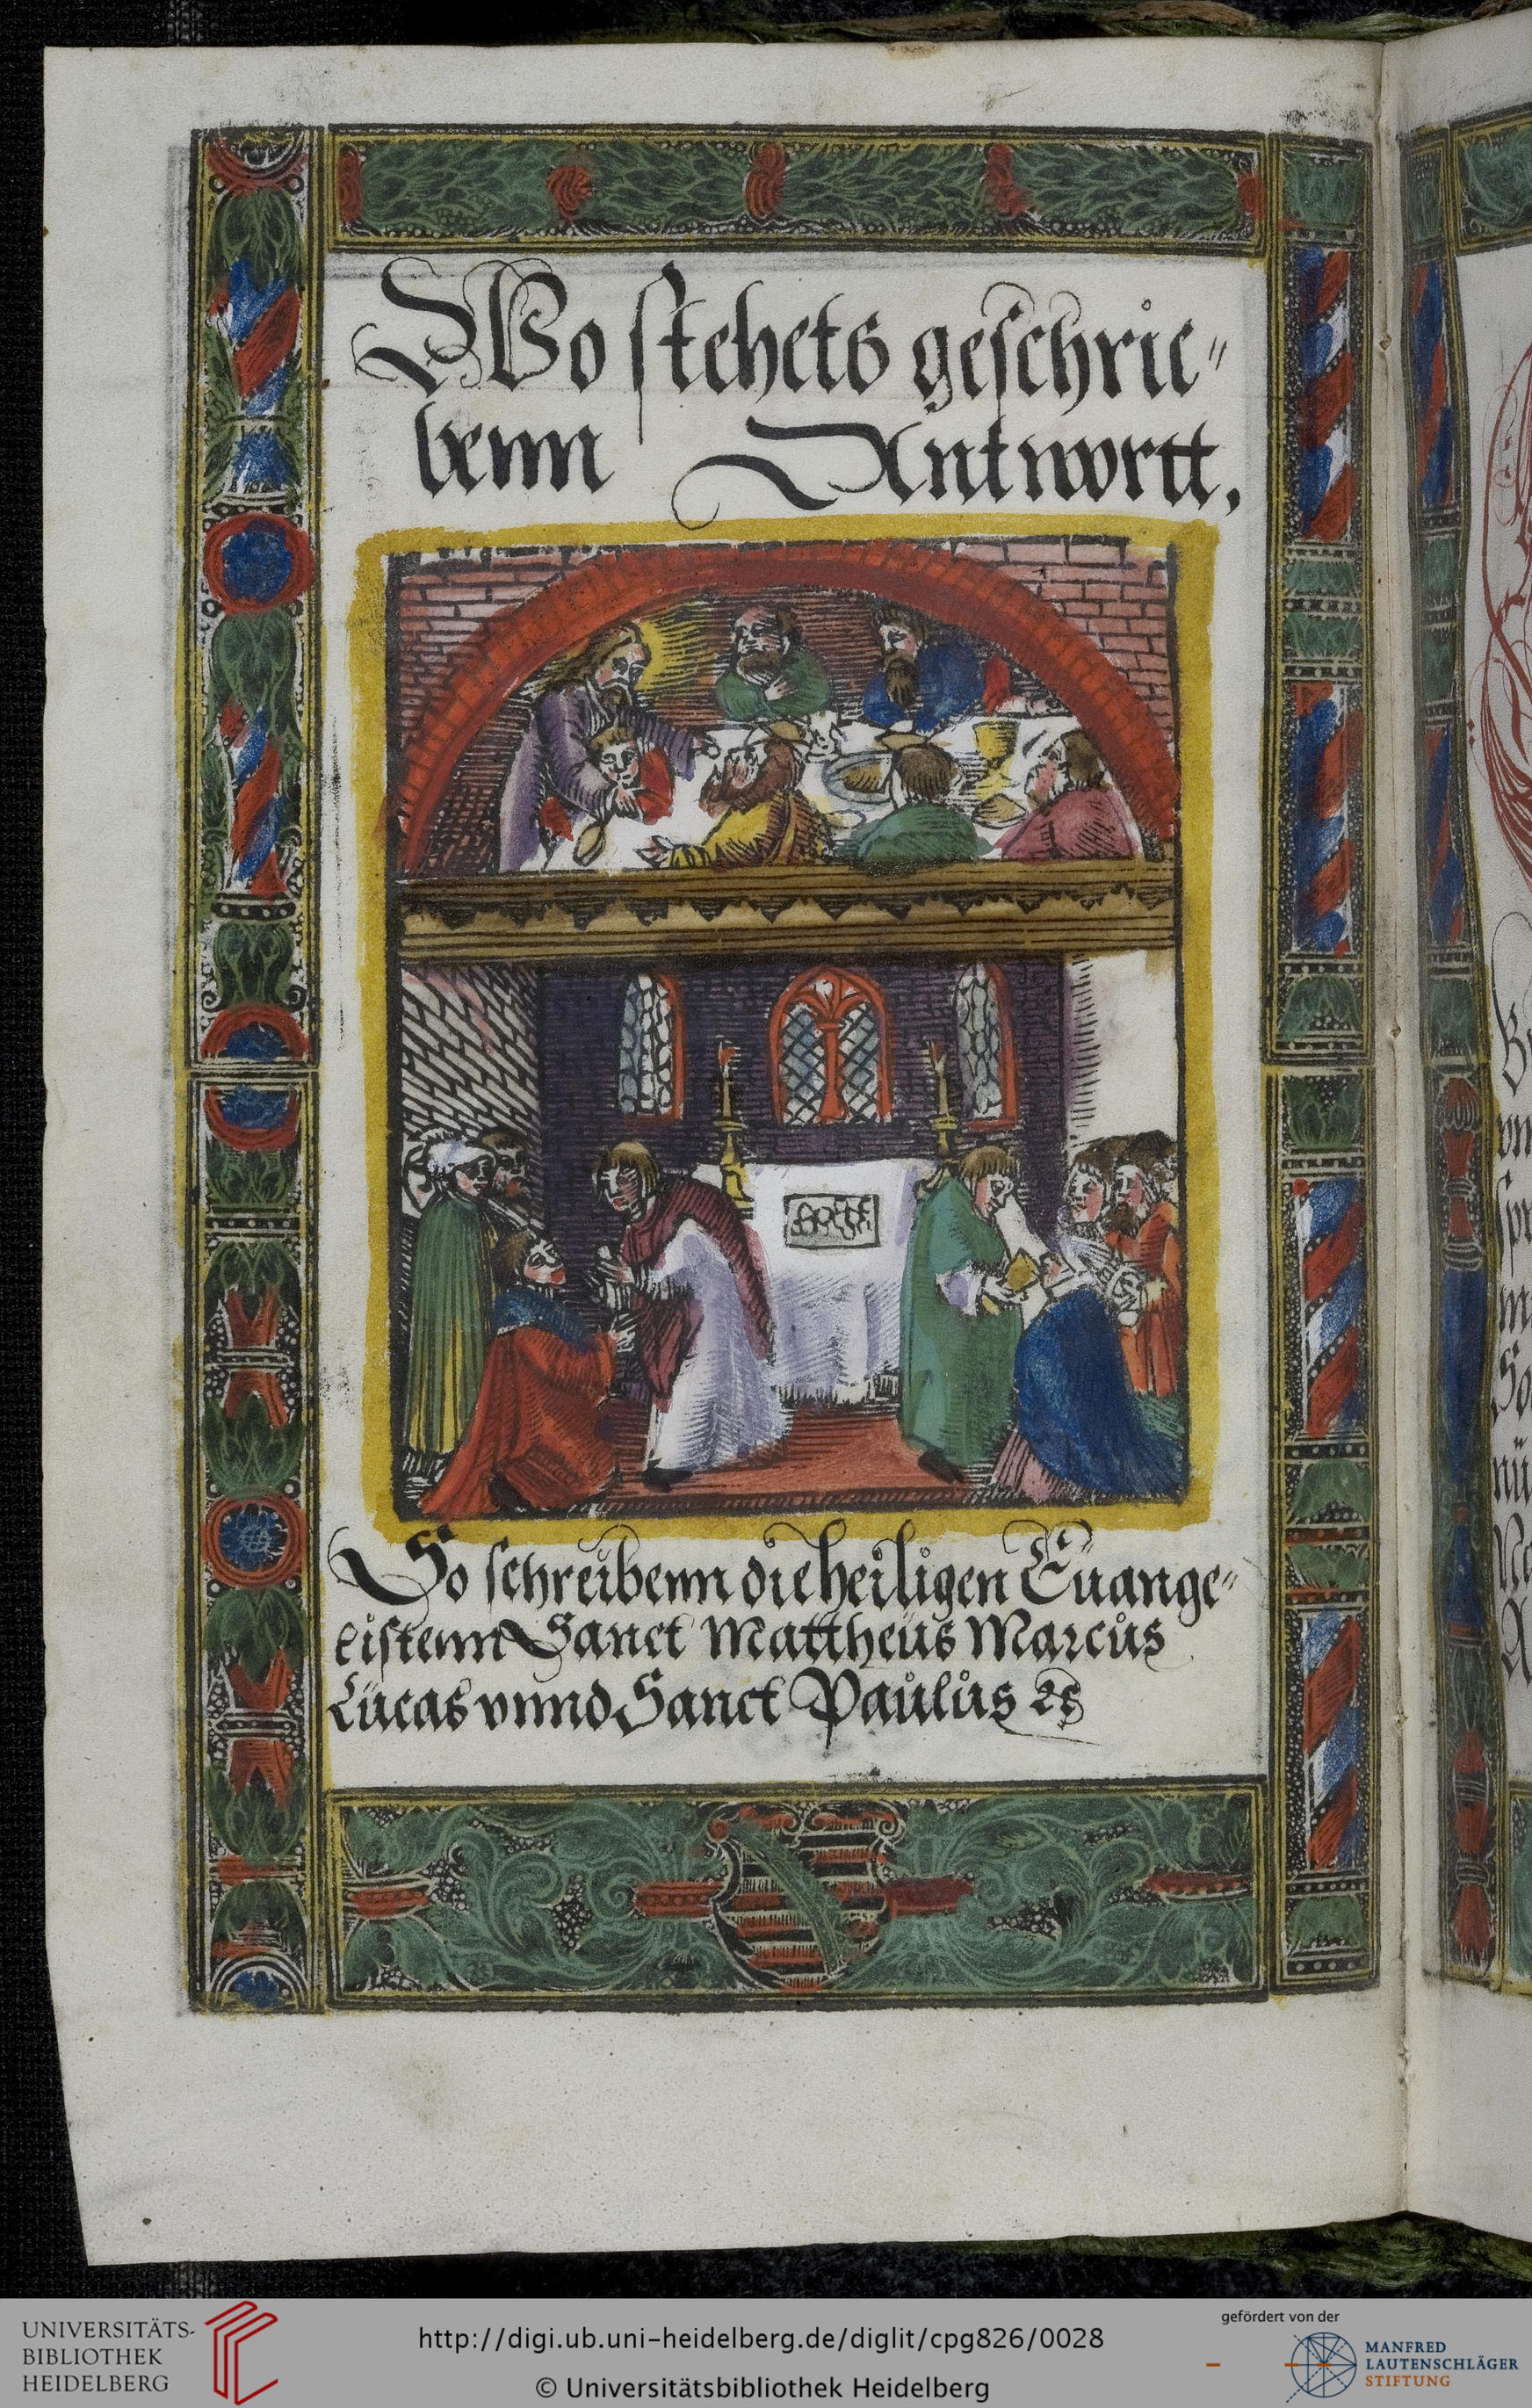 Wo stehets geschrie=
benn Antwortt,
So schreibenn die heiligen Euange=
listenn Sanct Mattheus Marcus
Lucas vnnd Sanct Paulus ꝛc
UNIVERSITÄTS-
BIBLIOTHEK
HEIDELBERG
http://digi.ub.uni-heidelberg.de/diglit/cpg826/0028
© Universitätsbibliothek Heidelberg
gefördert von der
MANFRED
LAUTENSCHLÄGER
STIFTUNG